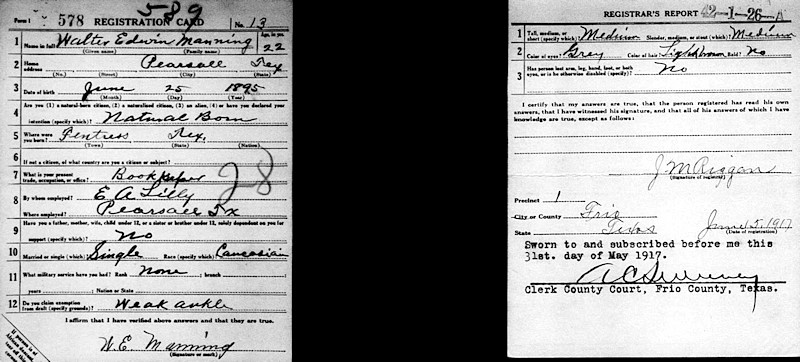 589
Form 1 578 REGISTRATION CARD No. 13
1 Name in full Walter Edwin Manning Age, in yrs. 22
(Given name) (Family name)
2 Home address Pearsall Tex
(No.) (Street) (City) (State)
3 Date of birth June 25 1895
(Month) (Day) (Year)
4 Are you (1) a natural-born citizen, (2) a naturalized citizen, (3) an alien, (4) or have you declared your
intention (specify which)? Natural Born
5 Where were you born? Fentress Tex.
(Town) (State) (Nation)
6 If not a citizen, of what country are you a citizen or subject?
7 What is your present trade, occupation, or office? Book keeper 28
8 By whom employed? E A Lilly
Where employed? Pearsall Tx
9 Have you a father, mother, wife, child under 12, or a sister or brother under 12, solely dependent on you for
support (specify which)? No
10 Married or single (which)? Single Race (specify which)? Caucasian
11 What military service have you had? Rank None ; branch
years ; Nation or State
12 Do you claim exemption from draft (specify grounds)? Weak ankle
I affirm that I have verified above answers and that they are true.
W. E. Manning
(Signature or mark)
If person is of
REGISTRAR'S REPORT 42-1-26-A
1 Tall, medium, or short (specify which)? Medium Slender, medium, or stout (which)? Medium
2 Color of eyes? Grey Color of hair? Light brown Bald? No
3 Has person lost arm, leg, hand, foot, or both
eyes, or is he otherwise disabled (specify)? No
I certify that my answers are true, that the person registered has read his own
answers, that I have witnessed his signature, and that all of his answers of which I have
knowledge are true, except as follows:
J M Riggan
(Signature of registrar)
Precinct 1
City or County Frio
State Texas June 5, 1917
(Date of registration)
Sworn to and subscribed before me this
31st. day of May 1917.
A C Sweeney
Clerk County Court, Frio County, Texas.